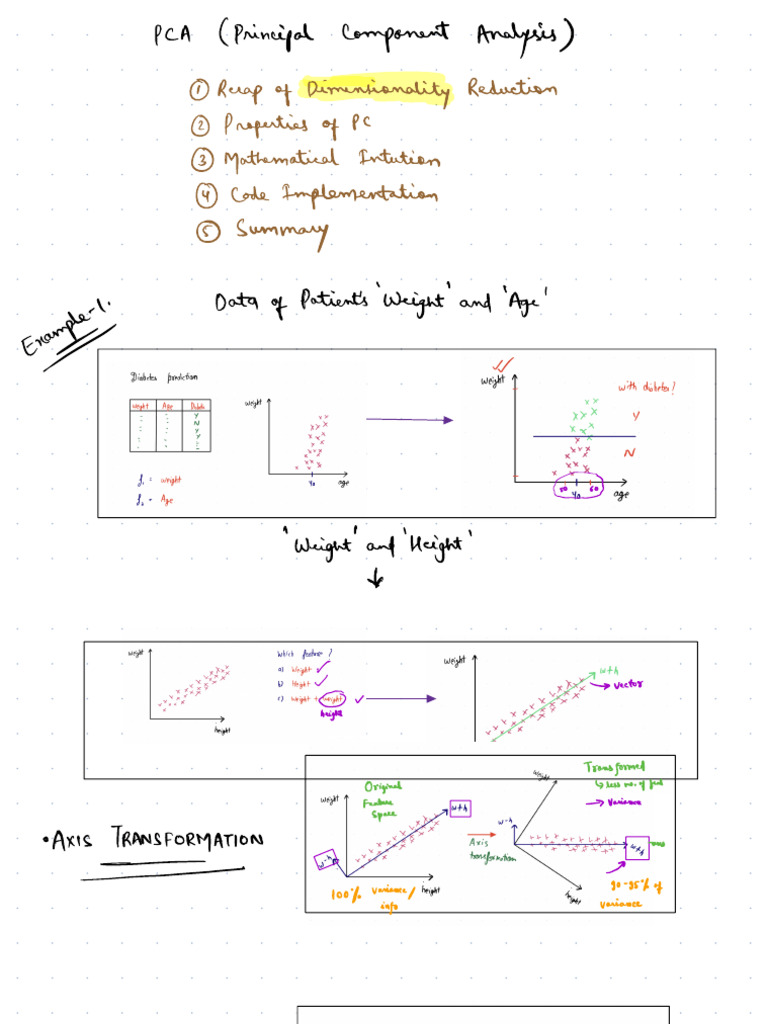 PCA (Principal Component Analysis)
① Recap of Dimensionality Reduction
② Properties of PC
③ Mathematical Intution
④ Code Implementation
⑤ Summary
Example-1.
Data of Patient's 'Weight' and 'Age'
Diabetes prediction
Weight Age Diabetes
Y
N
Y
Y
f₁ = weight
f₂ = Age
weight
40
age
weight
with diabetes?
Y
N
50 40 60
age
'Weight' and 'Height'
weight
height
Which feature?
a) Weight
b) Height
c) weight + weight
height
weight
w+h
vector
• AXIS TRANSFORMATION
Original
Feature
Space
weight
w+h
w-h
height
100% variance/
info
Axis
transformation
Transformed
less no. of
variance
weight
w-h
w+h
height
90-95% of
variance